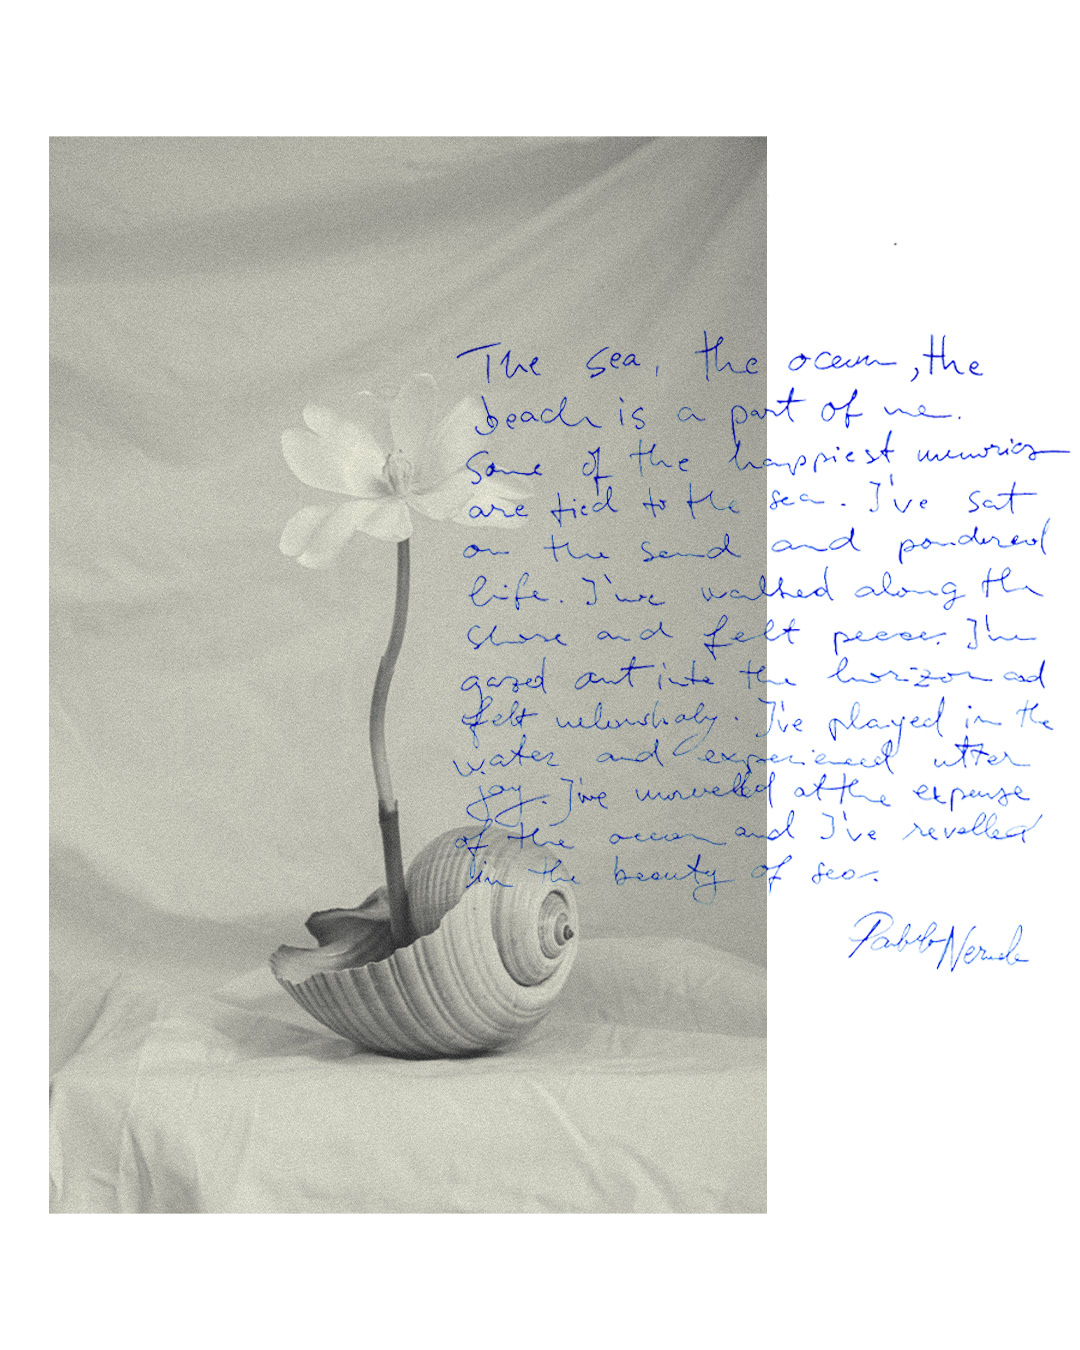 The sea, the ocean, the
beach is a part of me.
Some of the happiest memories
are tied to the sea. I've sat
on the sand and pondered
life. I've walked along the
shore and felt peace. I've
gazed out into the horizon and
felt melancholy. I've played in the
water and experienced utter
joy. I've marvelled at the expense
of the ocean and I've revelled
in the beauty of sea.
Pablo Neruda